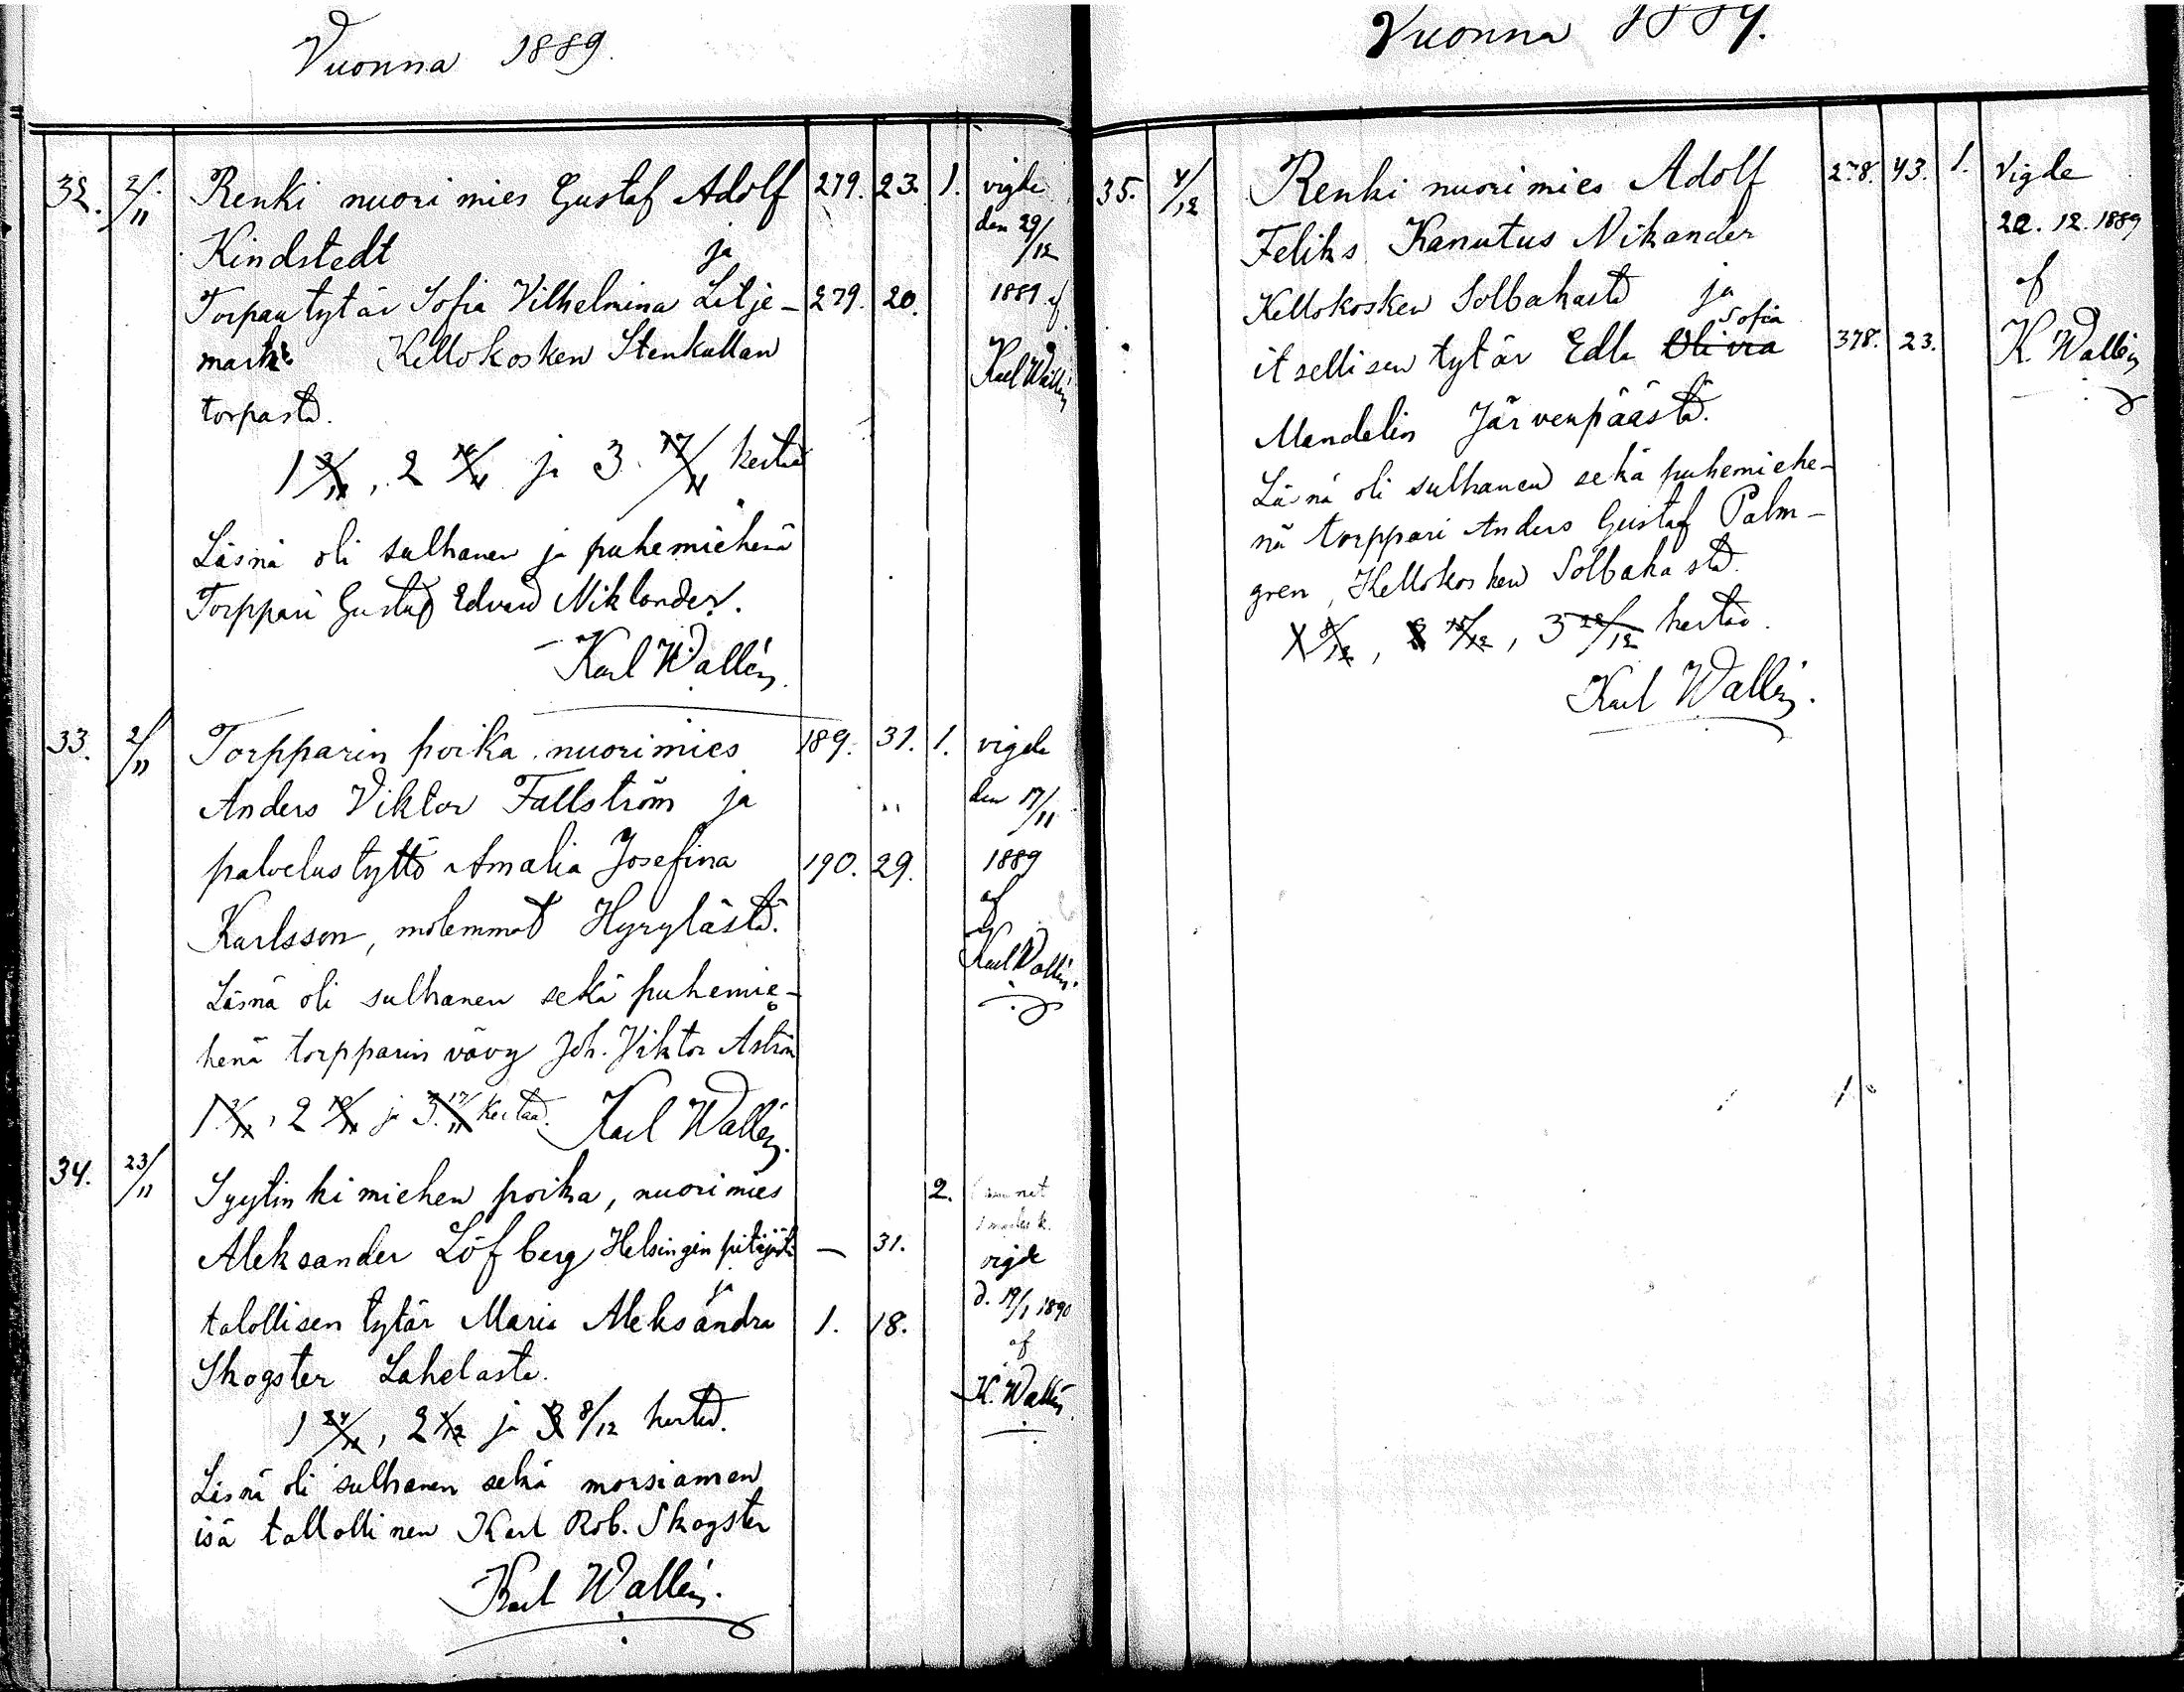 Vuonna 1889.
32. 2/11 Renki nuorimies Gustaf Adolf 279. 23. 1. vigde
Kindstedt ja den 29/12
Torpan tytär Sofia Vilhelmina Litje- 279. 20. 1889 af
mark Kellokosken Stenkullan Karl Wallén
torpasta.
1 3/11, 2 10/11 ja 3 17/11 kertaa
Läsnä oli sulhanen ja puhemiehenä
Torppari Gustaf Edvard Niklander.
Karl Wallén.
33. 2/11 Torpparin poika nuorimies 189. 31. 1. vigde
Anders Viktor Fallström ja den 17/11
palvelustyttö Amalia Josefina 190. 29. 1889
Karlsson, molemmat Hyrylästä. af
Läsnä oli sulhanen sekä puhemie- Karl Wallén.
henä torpparin vävy Joh. Viktor Åström
1 3/11, 2 10/11 ja 3 17/11 kertaa. Karl Wallén.
34. 23/11 Syytinkimiehen poika, nuorimies 2.
Aleksander Löfberg Helsingin pitäjästä — 31. vigde
ja d. 19/1 1890
talollisen tytär Maria Aleksandra 1. 18. af
Skogster Lahelasta. K. Wallén
1 24/11, 2 1/12 ja 3 8/12 kertaa.
Läsnä oli sulhanen sekä morsiamen
isä tallollinen Karl Rob. Skogster
Karl Wallén.
Vuonna 1889.
35. 4/12 Renki nuorimies Adolf 278. 43. 1. Vigde
Feliks Kanutus Nikander 22. 12. 1889
Kellokosken Solbakasta ja af
Sofia
itsellisen tytär Edla Olivia 378. 23. K. Wallén
Mandelin Järvenpäästä.
Läsnä oli sulhanen sekä puhemiehe-
nä torppari Anders Gustaf Palm-
gren, Kellokosken Solbakasta.
1 8/12, 2 15/12, 3 22/12 kertaa.
Karl Wallén.